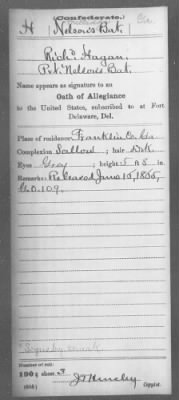 (Confederate.)
H Nelson's Bat. Ga.
Rich'd Hagan
Pvt. Nelson's Bat.
Name appears as signature to an
Oath of Allegiance
to the United States, subscribed to at Fort
Delaware, Del.
Place of residence Franklin Co. Ga
Complexion Sallow ; hair Drk.
Eyes Gray ; height 5 ft. 8 in
Remarks: Released June 10, 1865,
G.O. 109.
Signed by mark
Number of roll:
190; sheet 3
(658) Copyist.